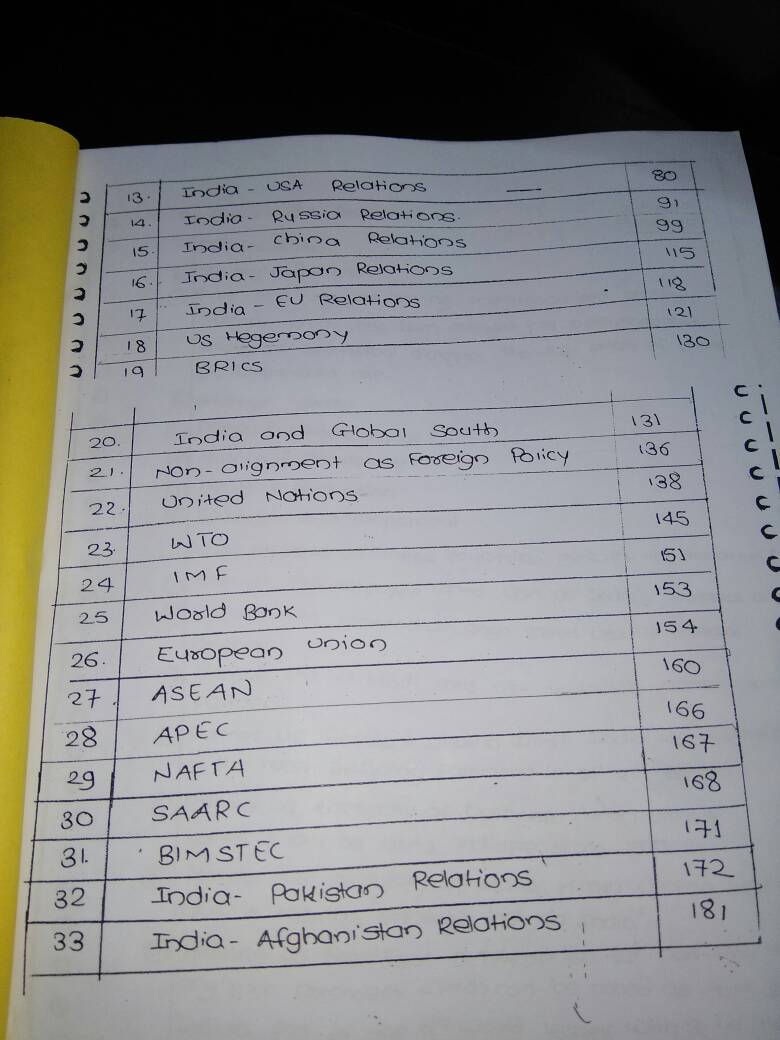 13. India - USA Relations — 80
14. India - Russia Relations. 91
15. India - China Relations 99
16. India - Japan Relations 115
17 India - EU Relations 118
18 US Hegemony 121
19 BRICS 130
20. India and Global South 131
21. Non-alignment as Foreign Policy 136
22. United Nations 138
23. WTO 145
24 IMF 151
25 World Bank 153
26. European Union 154
27. ASEAN 160
28 APEC 166
29 NAFTA 167
30 SAARC 168
31. BIMSTEC 171
32 India - Pakistan Relations 172
33 India - Afghanistan Relations 181